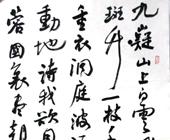 九嶷山上白雲
斑竹一枝千
重衣洞庭波
動地詩我欲因
蓉國裏盡朝